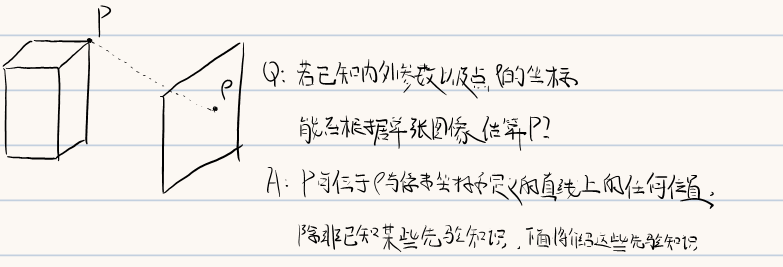 P
p
Q: 若已知内外参数以及点p的坐标
能否根据单张图像估算P?
A: P可位于p与像素坐标定义的直线上的任何位置,
除非已知某些先验知识,下面将介绍这些先验知识